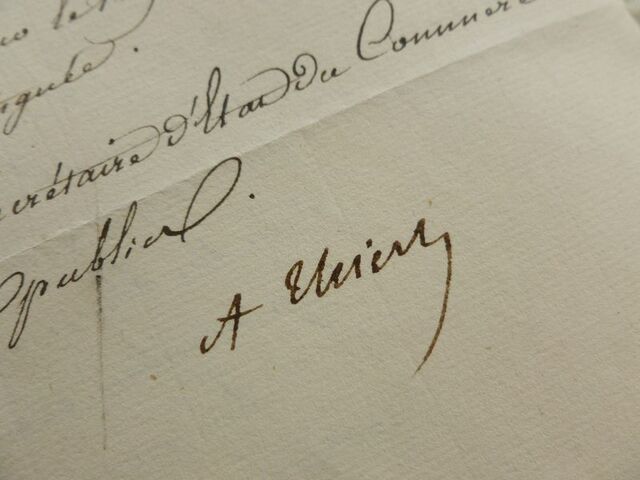 inguée.
crétaire d'Etat du Commerce
publics.
A Thiers